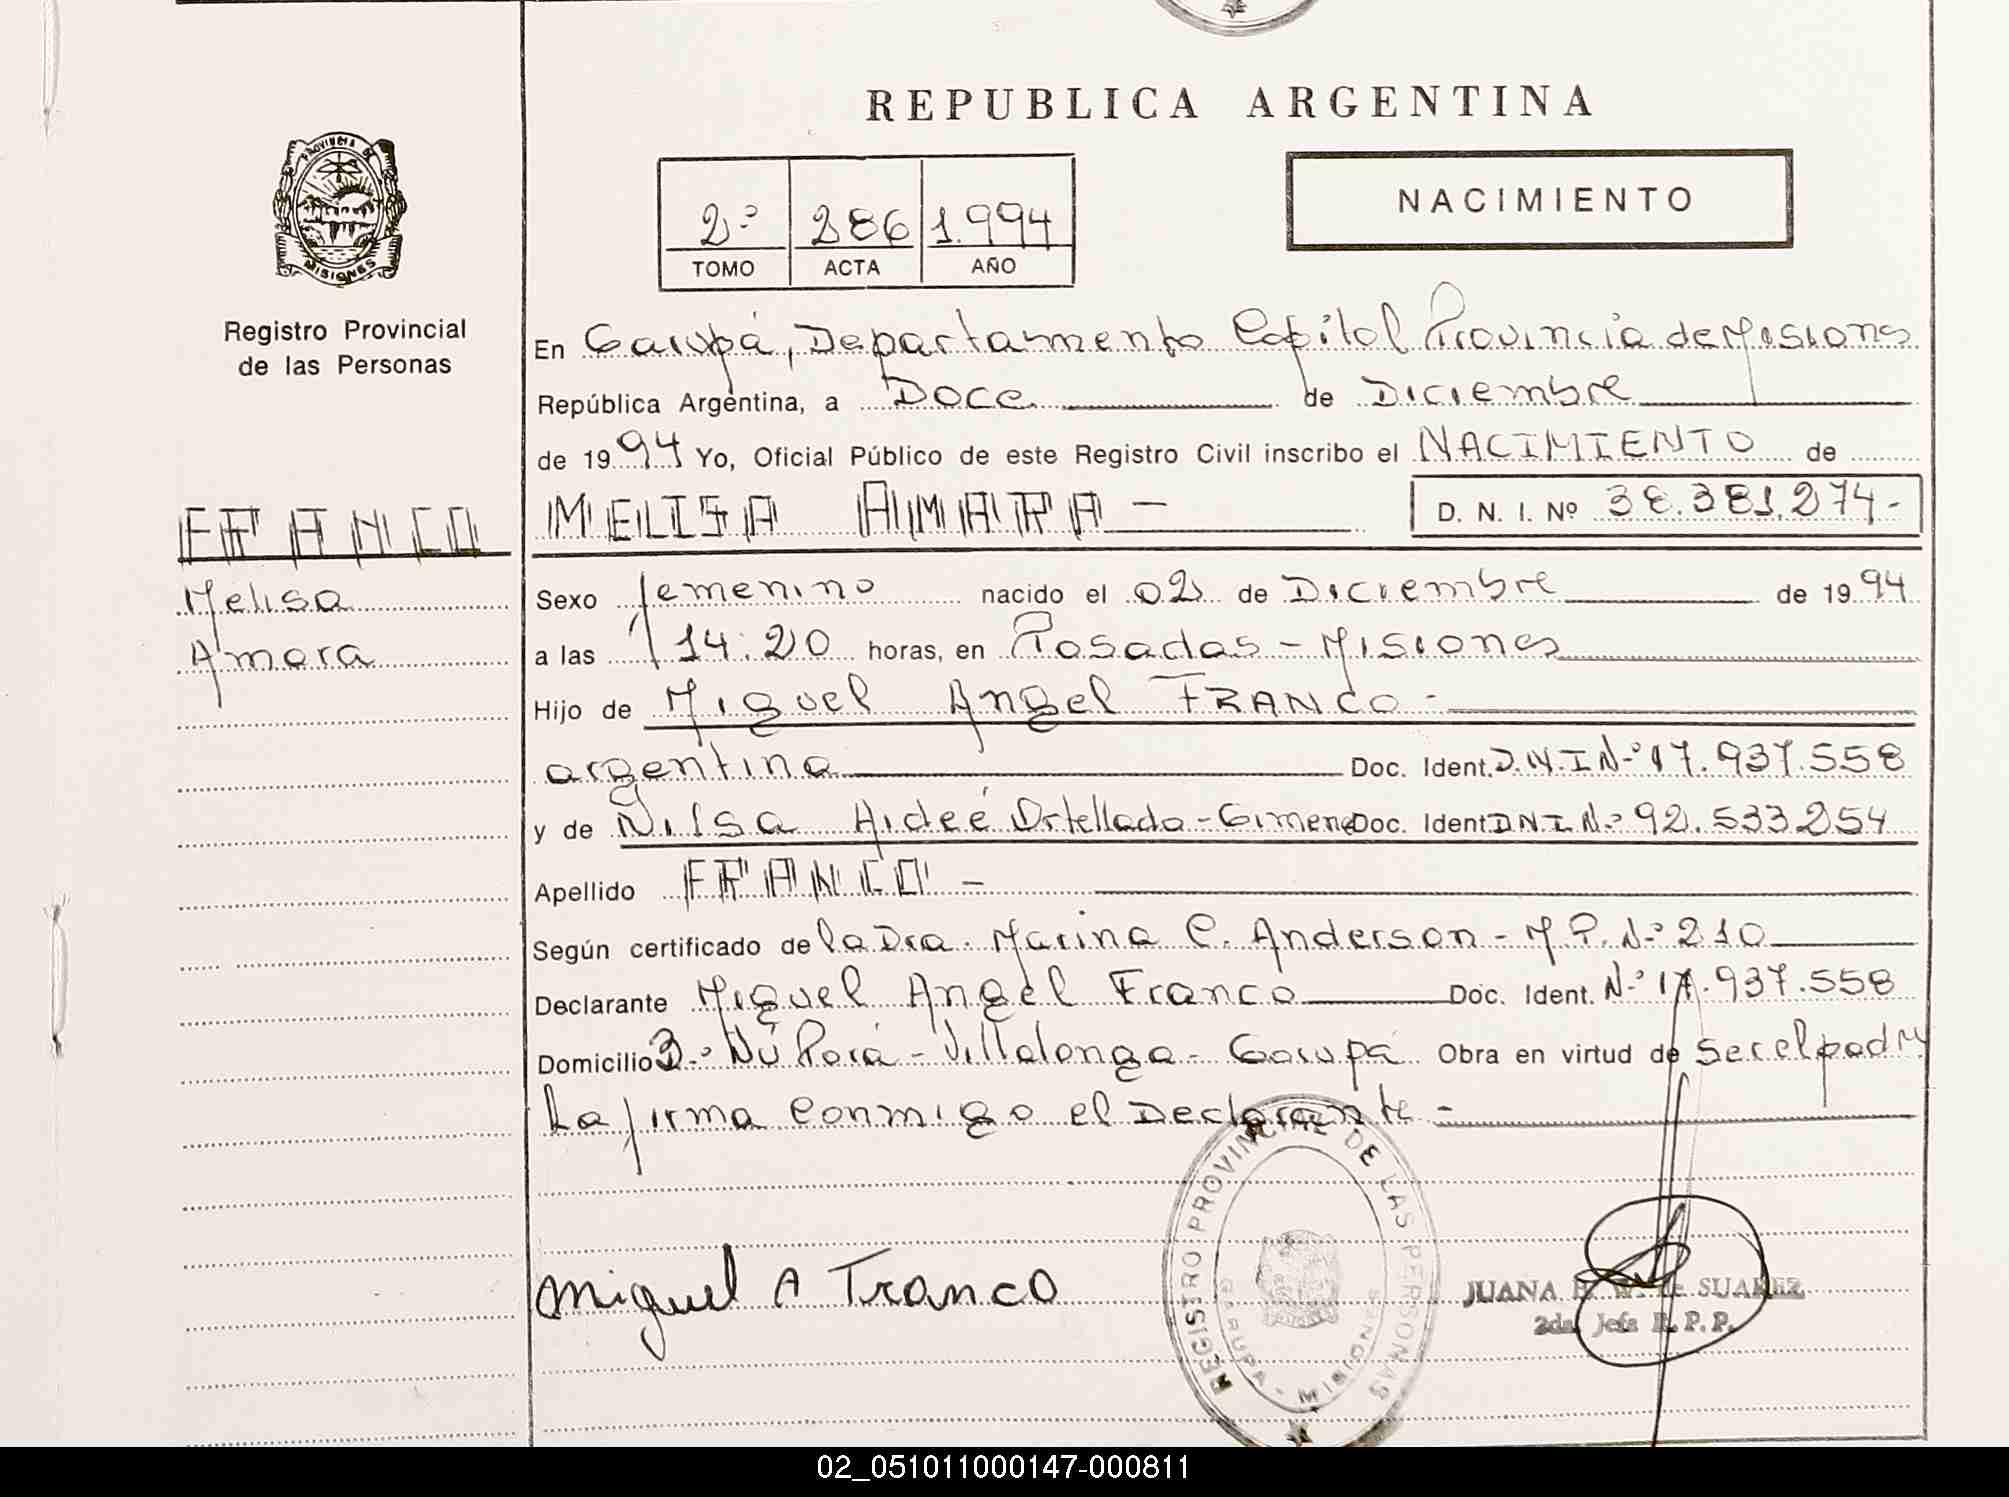 REPUBLICA ARGENTINA
PROVINCIA DE
MISIONES
Registro Provincial
de las Personas
2º 286 1.994
TOMO ACTA AÑO
NACIMIENTO
En Garupá, Departamento Capital Provincia de Misiones
República Argentina, a Doce de Diciembre
de 1994 Yo, Oficial Público de este Registro Civil inscribo el NACIMIENTO de
FRANCO
Melisa
Amara
MELISA AMARA - D. N. I. Nº 38.381.274-
Sexo femenino nacido el 02 de Diciembre de 1994
a las 14:20 horas, en Posadas - Misiones
Hijo de Miguel Angel FRANCO -
argentina Doc. Ident. D.N.I Nº 17.937.558
y de Nilsa Aideé Ortellado - Gimene Doc. Ident D.N.I. Nº 92.533254
Apellido FRANCO -
Según certificado de la Dra. Marina C. Anderson - M.P. Nº 210
Declarante Miguel Angel Franco Doc. Ident. Nº 17.937.558
Domicilio Bº Ñú Porá - Villalonga - Garupá Obra en virtud de ser el padre
La firma conmigo el Declarante -
Miguel A Franco
REGISTRO PROVINCIAL DE LAS PERSONAS
GARUPA - MISIONES
JUANA de SUAREZ
2da. Jefa R. P. P.
02_051011000147-000811